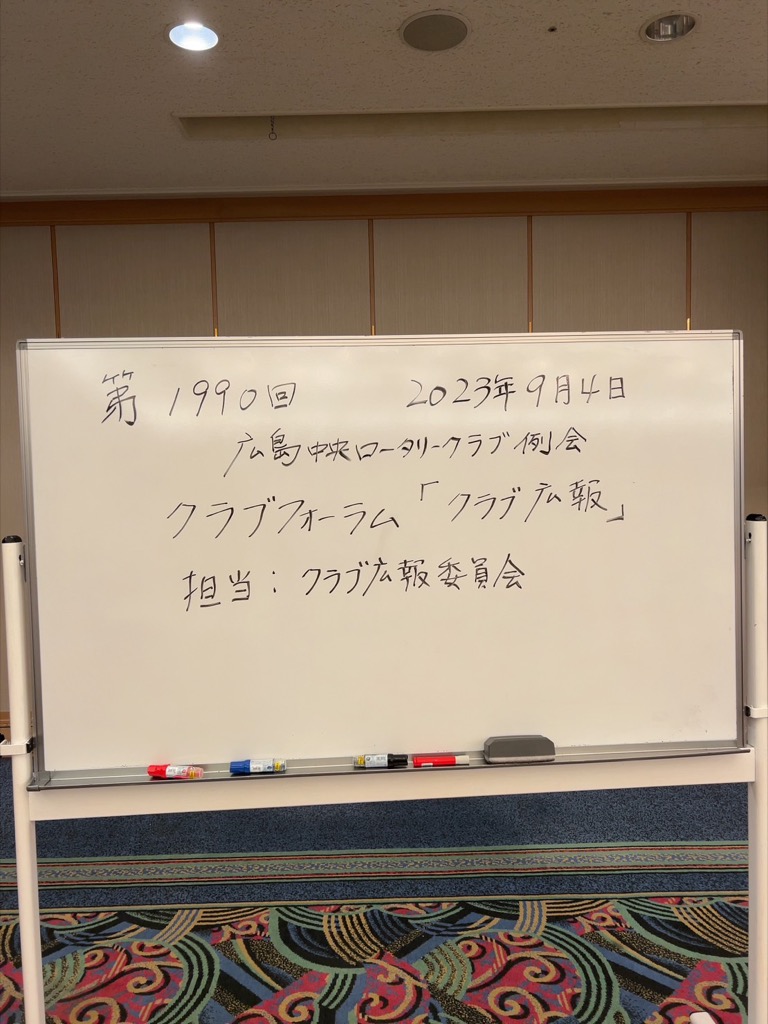 第1990回 2023年9月4日
広島中央ロータリークラブ例会
クラブフォーラム「クラブ広報」
担当：クラブ広報委員会